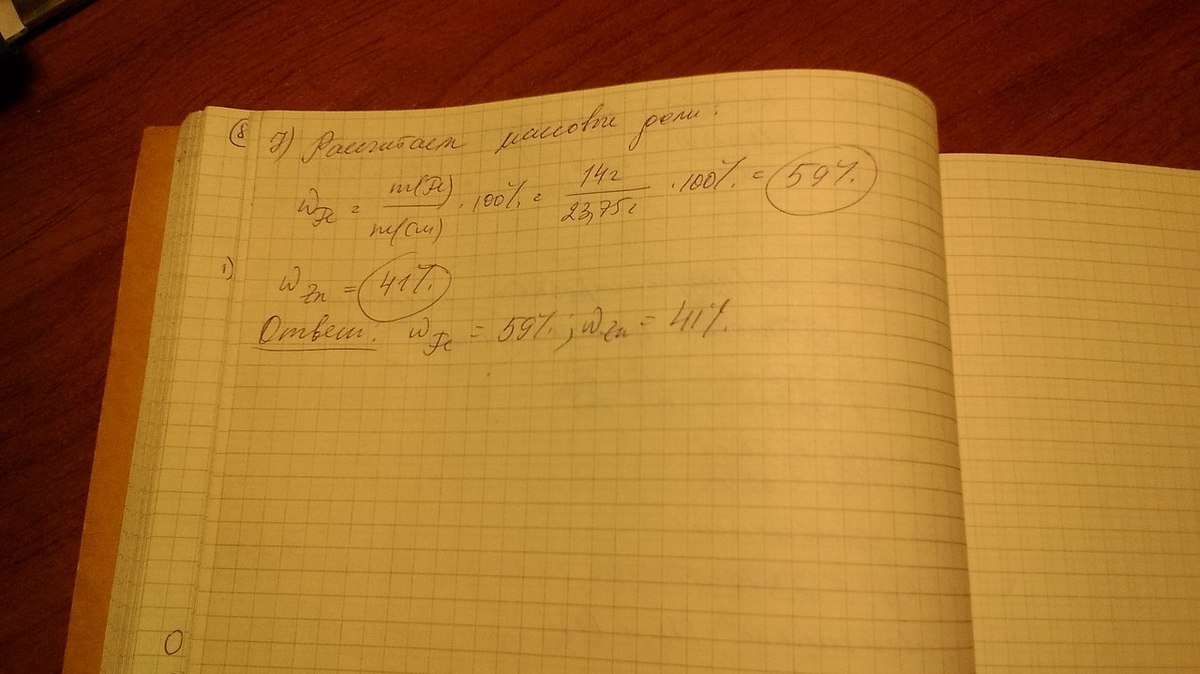 8 7) Рассчитаем массовые доли:
w Fe = m(Fe) / m(см) · 100% = 14г / 23,75г · 100% = 59%
1)
w Zn = 41%
Ответ: w Fe = 59%; w Zn = 41%